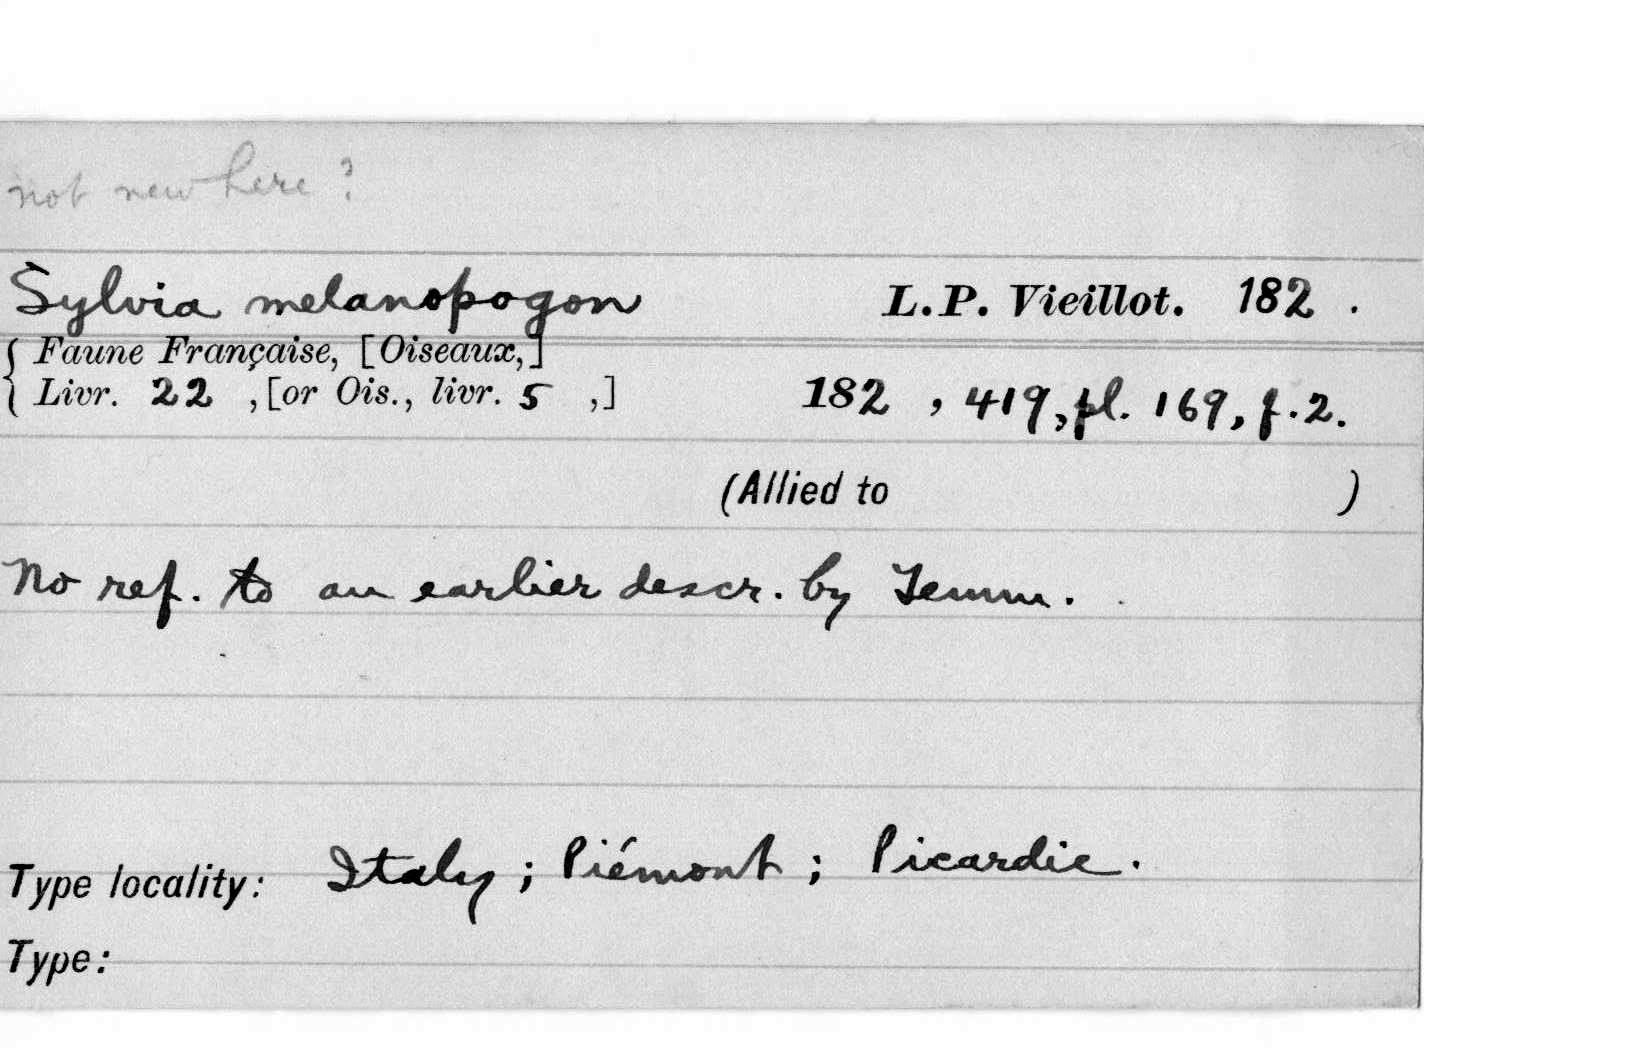 not new here ?
Sylvia melanopogon L.P. Vieillot. 182 .
{ Faune Française, [Oiseaux,]
Livr. 22 ,[or Ois., livr. 5 ,] 182 , 419, pl. 169, f.2.
(Allied to )
No ref. to an earlier descr. by Temm.
Type locality: Italy ; Piémont ; Picardie.
Type: